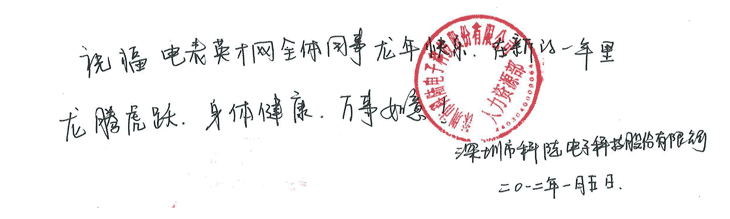 祝福 电表英才网全体同事龙年快乐. 在新的一年里
龙腾虎跃. 身体健康. 万事如意!
深圳市科陆电子科技股份有限公司
人力资源部
深圳市科陆电子科技股份有限公司
二〇一二年一月五日.